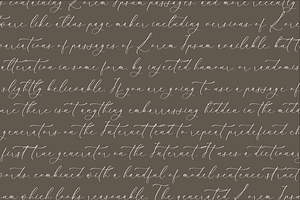 s containing Lorem Ipsum passages, and more recently
ware like aldus page maker including versions of Lorem
variations of passages of Lorem Ipsum available, but t
alteration in some form, by injected humour, or randomis
slightly believable. If you are going to use a passage of
are there isn't anything embarrassing hidden in the midd
generators on the Internet tend to repeat predefined ch
first true generator on the Internet. It uses a dictionar
words, combined with a handful of model sentence struct
um which looks reasonable. The generated Lorem Ipsum